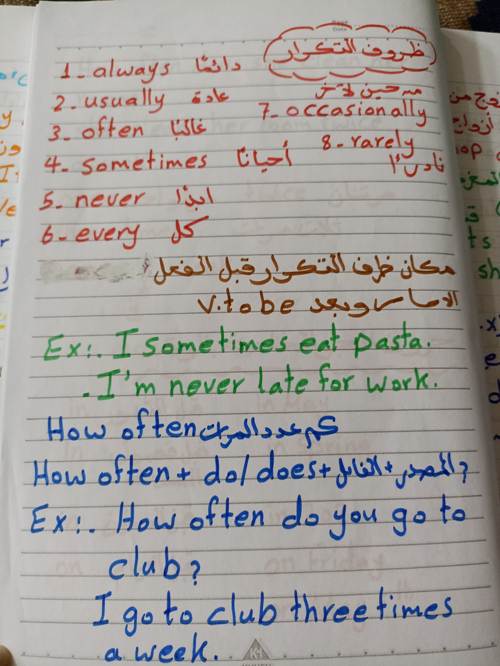 ظروف التكرار
1- always دائمًا
2- usually عادة
من حين لآخر
7- occasionally
3- often غالبًا
8- rarely
نادرًا
4- sometimes أحيانًا
5- never ابدًا
6- every كل
مكان ظرف التكرار قبل الفعل
الاساسى وبعد v.to be
Ex:. I sometimes eat pasta.
- I'm never late for work.
How often كم عدد المرات
How often + do/does + الفاعل + المصدر ?
Ex:. How often do you go to
club?
I go to club three times
a week.